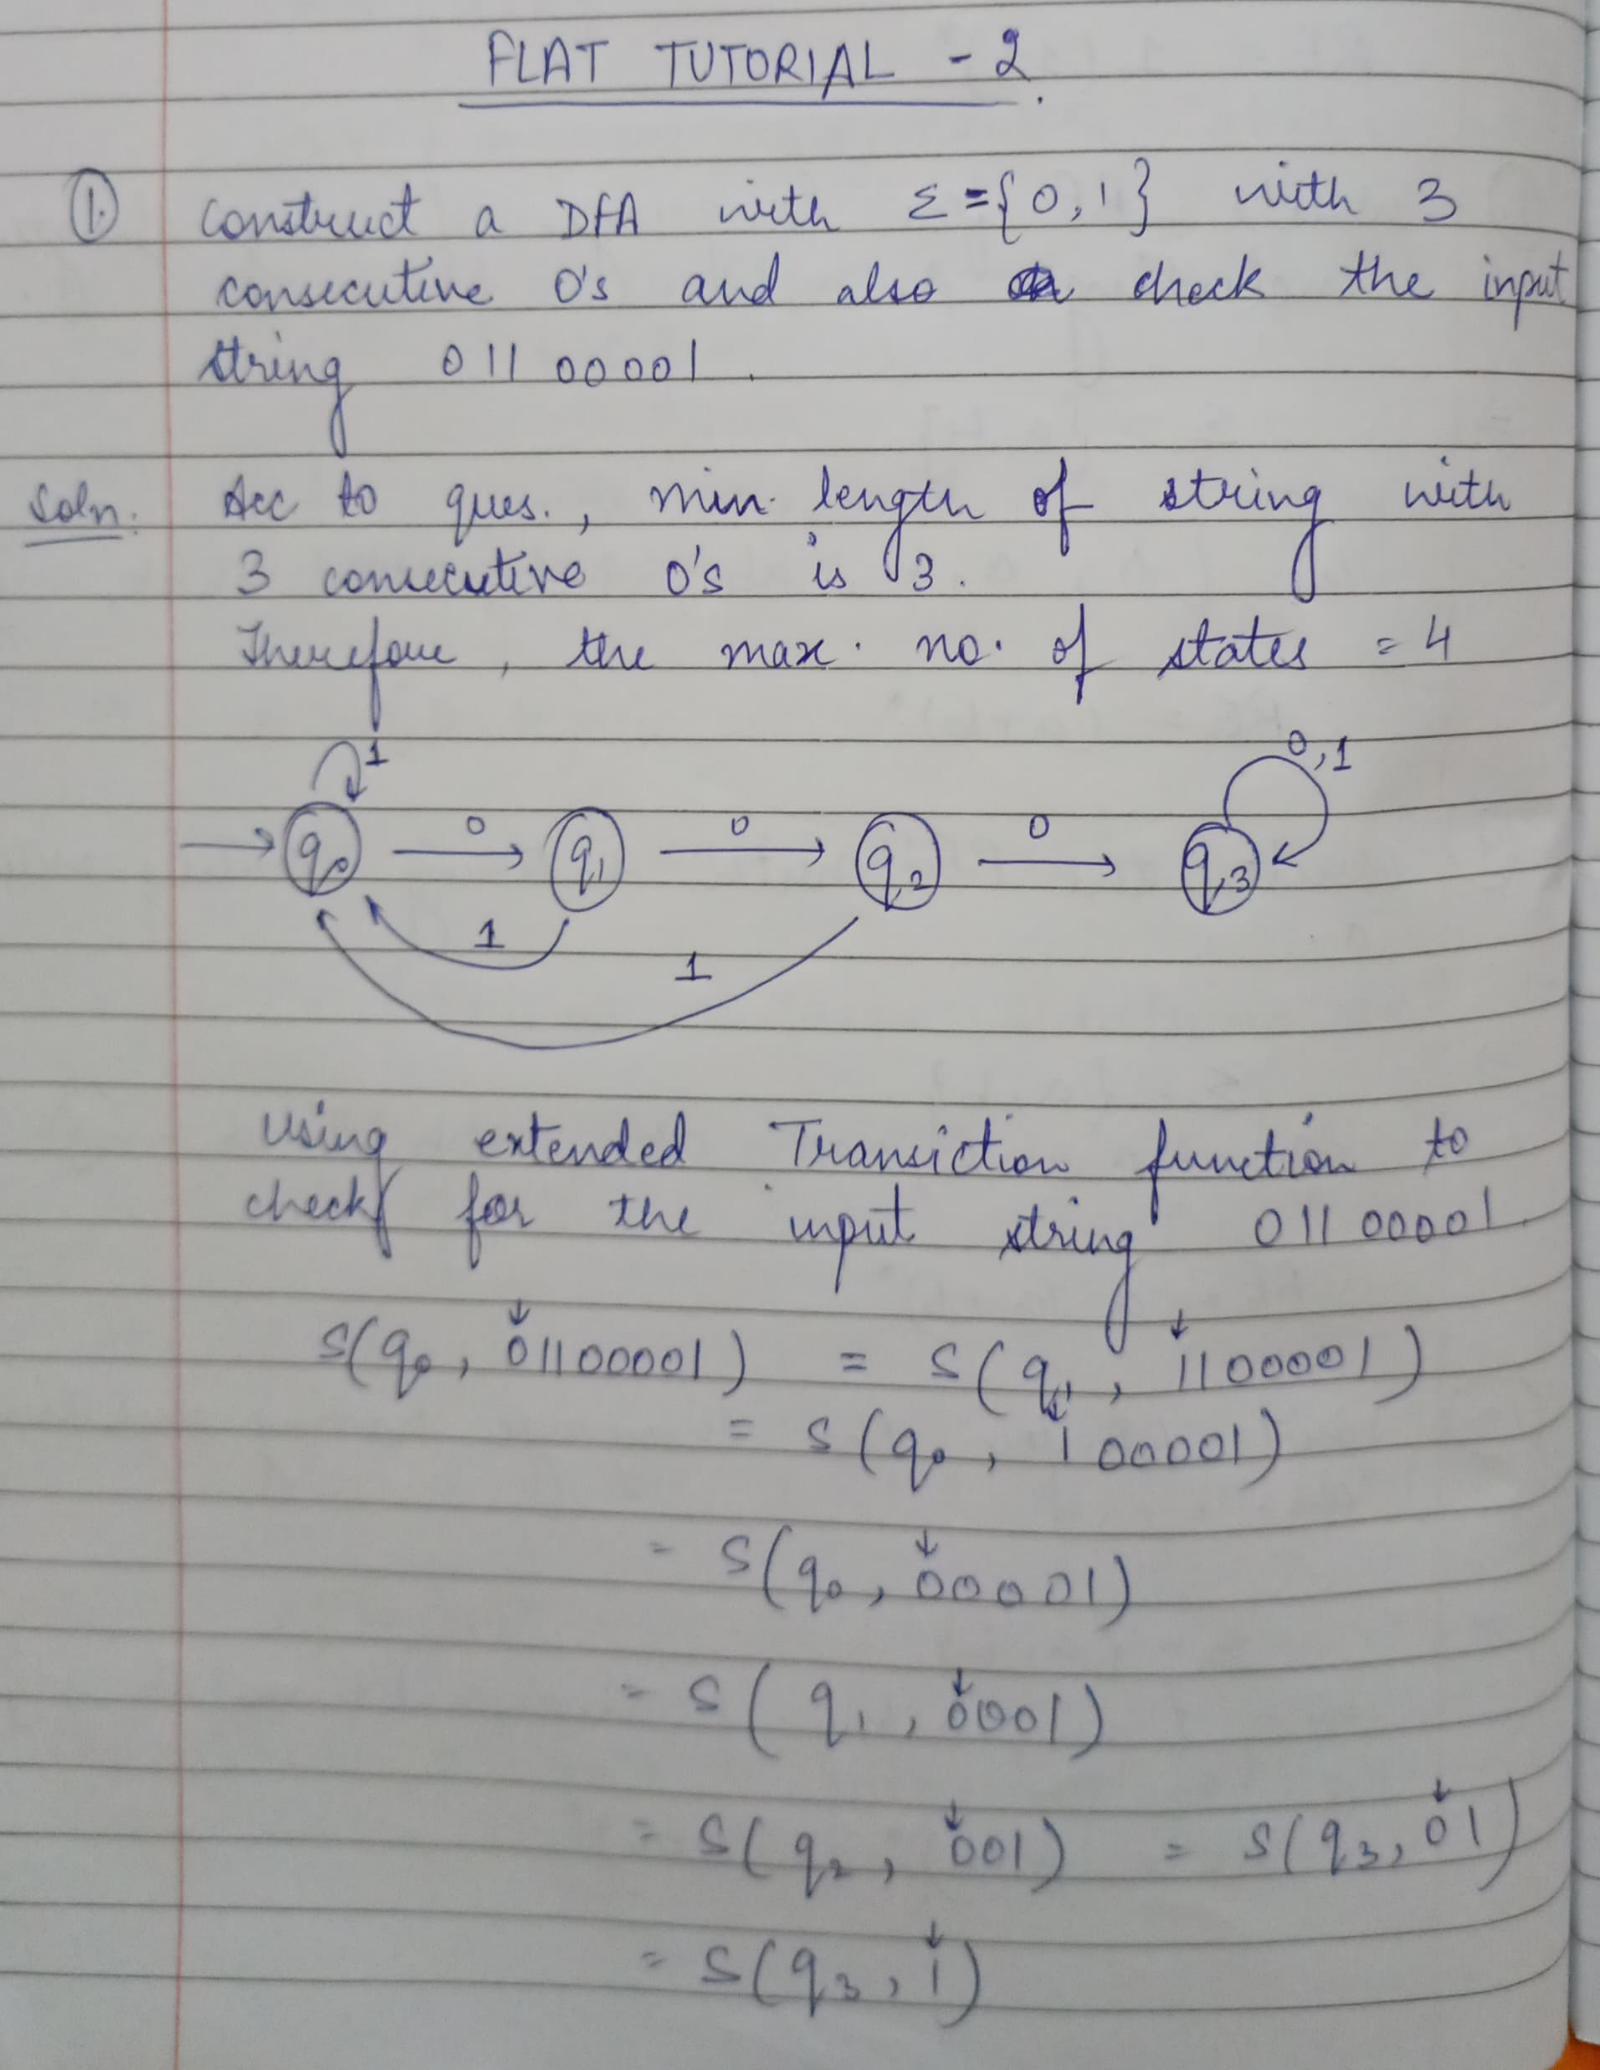 FLAT TUTORIAL - 2.
1. Construct a DFA with Σ = {0,1} with 3
consecutive 0's and also check the input
string 01100001.
Soln. Acc to ques., min. length of string with
3 consecutive 0's is 3.
Therefore, the max. no. of states = 4
1 0,1
q0 0 q1 0 q2 0 q3
1 1
Using extended Transiction function to
check for the input string 01100001.
S(q0, 01100001) = S(q1, 1100001)
= S(q0, 100001)
= S(q0, 00001)
= S(q1, 0001)
= S(q2, 001) = S(q3, 01)
= S(q3, 1)